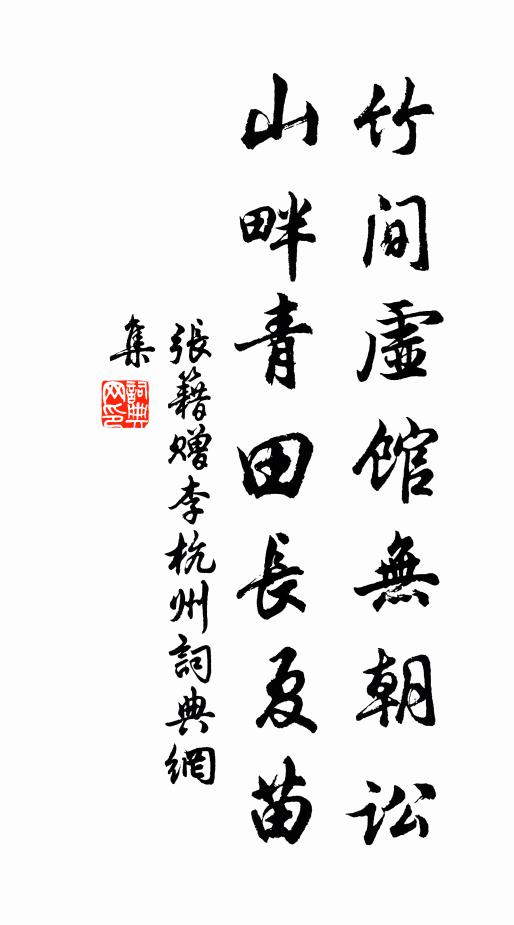 竹間虛館無朝訟
山畔青田長夏苗
張籍贈李杭州詞典網
集
詞典
网印